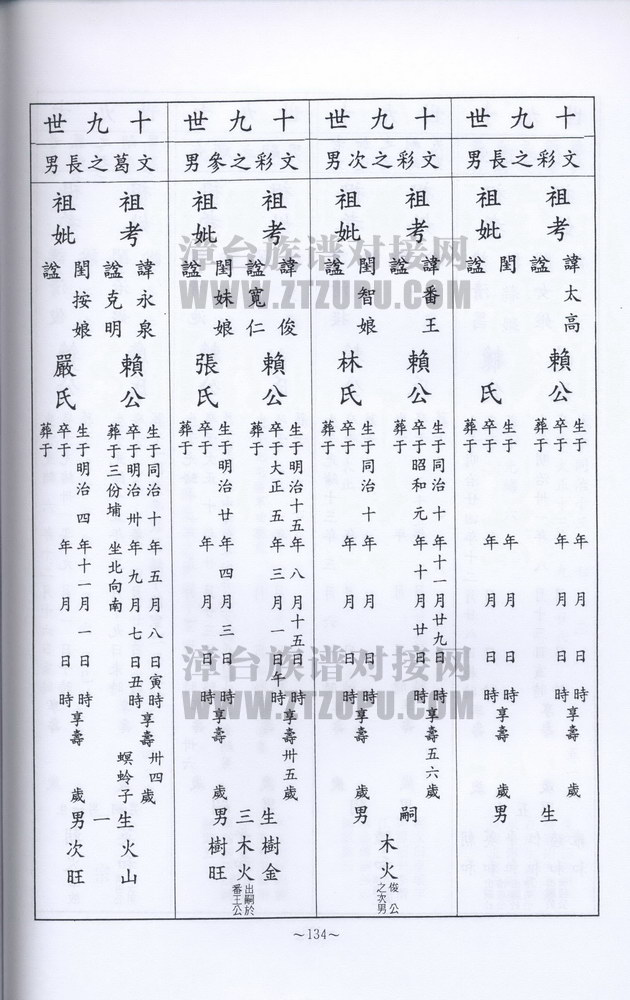 十九世
文彩之長男
祖考
諱太高
諡
賴公
生于 年 月 日 時享壽 歲
卒于 年 月 日 時
葬于
祖妣
閨
諡
氏
生于 年 月 日 時享壽 歲
卒于 年 月 日 時
葬于
生
男
十九世
文彩之次男
祖考
諱番王
諡
賴公
生于同治十年十一月廿九日 時享壽五六歲
卒于昭和元年十月廿日 時
葬于
祖妣
閨智娘
諡
林氏
生于同治十年 月 日 時享壽 歲
卒于 年 月 日 時
葬于
嗣
男
木火
俊公之次男
十九世
文彩之參男
祖考
諱俊
諡寬仁
賴公
生于明治十五年八月十五日 時享壽卅五歲
卒于大正五年三月一日午時
葬于
祖妣
閨妹娘
諡
張氏
生于明治廿年四月三日 時享壽 歲
卒于 年 月 日 時
葬于
生樹金
三木火
出嗣於番王公
男樹旺
十九世
文葛之長男
祖考
諱永泉
諡克明
賴公
生于同治十年五月八日寅時享壽卅四歲
卒于明治卅年九月七日丑時
葬于三份埔 坐北向南
祖妣
閨按娘
諡
嚴氏
生于明治四年十一月一日 時享壽 歲
卒于 年 月 日 時
葬于
螟蛉子
生火山
一
男次旺
～134～
漳台族谱对接网
WWW.ZTZUPU.COM
漳台族谱对接网
WWW.ZTZUPU.COM